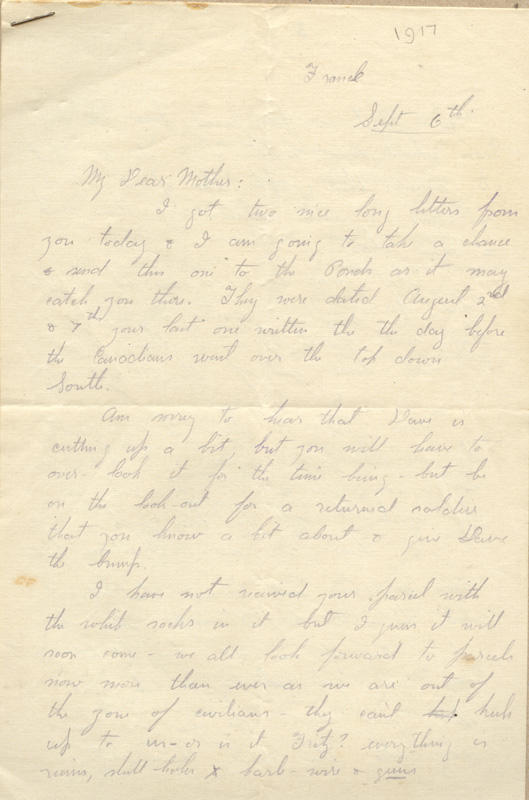 1917
France
Sept 6th
My Dear Mother:
I got two nice long letters from
you today & I am going to take a chance
& send this one to the Ponds as it may
catch you there. They were dated August 2nd
& 7th your last one written the the day before
the Canadians went over the top down
South.
Am sorry to hear that Dave is
cutting up a bit, but you will have to
over-look it for the time being - but be
on the look-out for a returned soldier
that you know a bit about & give Dave
the bump.
I have not received your parcel with
the white socks in it but I guess it will
soon come - we all look forward to parcels
now more than ever as we are out of
the zone of civilians - they can't keep
up to us - or is it Fritz? everything is
ruins, shell-holes & barb-wire & guns